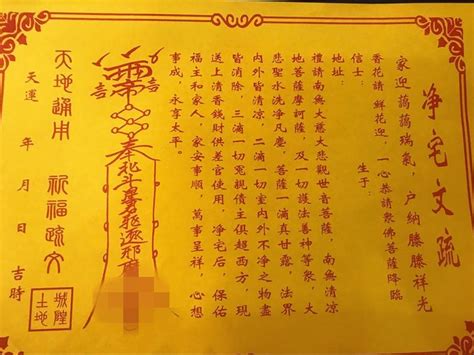 净宅文疏
家迎藹藹瑞氣,户納騰騰祥光
香花請 鮮花迎,一心恭請衆佛菩薩降臨
信士: 生于:
地址:
禮請南無大慈大悲觀世音菩薩,南無清凉
地菩薩摩訶薩,及一切護法善神等衆,大
悲聖水洗净凡塵。菩薩一滴真甘露,法界
内外皆清凉,二滴一切室内外不净之物盡
皆消除,三滴一切冤親債主俱超西方,現
送上清香錢財供差官使用,净宅后,保佑
福主和家人,家安事順,萬事呈祥,心想
事成,永享太平。
吉 吉
奉北斗
天地通用 祈福疏文
天運 年 月 日 吉時
城隍土地